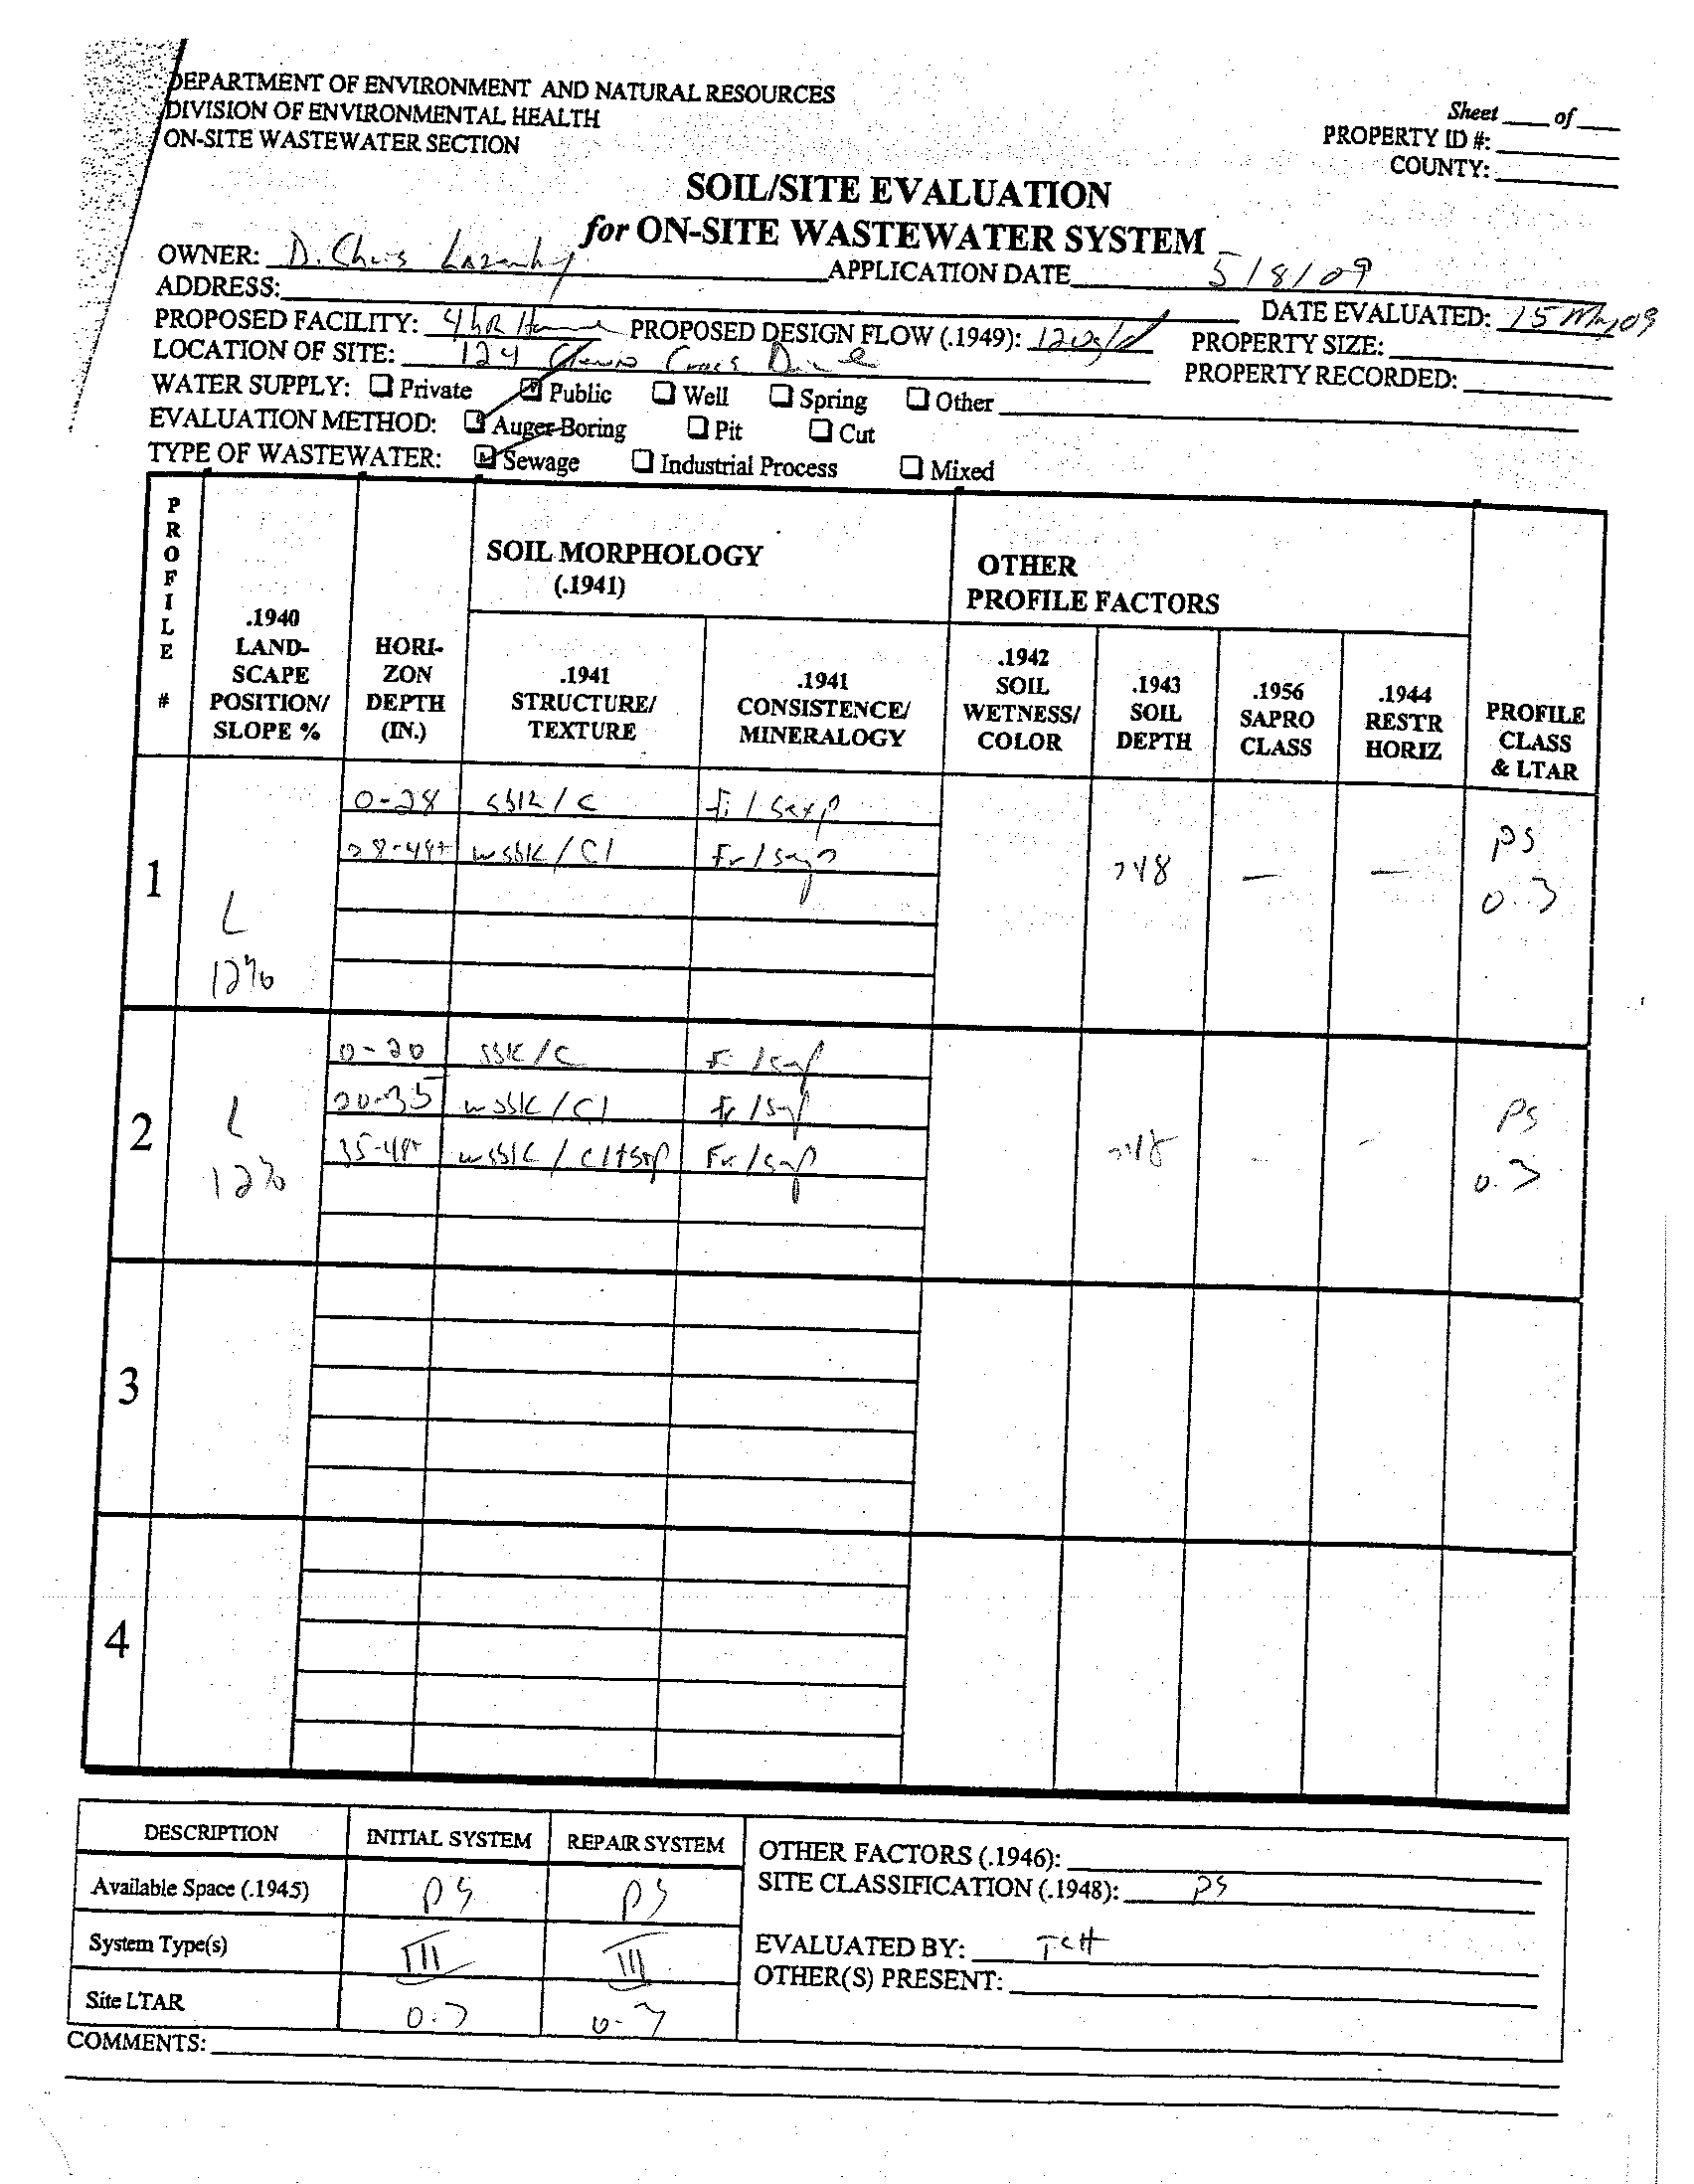 DEPARTMENT OF ENVIRONMENT AND NATURAL RESOURCES
DIVISION OF ENVIRONMENTAL HEALTH
ON-SITE WASTEWATER SECTION
Sheet ____ of ____
PROPERTY ID #:
COUNTY:
SOIL/SITE EVALUATION
for ON-SITE WASTEWATER SYSTEM
OWNER: D. Chris
APPLICATION DATE 5/8/09
ADDRESS:
DATE EVALUATED: 15 May 09
PROPOSED FACILITY: 4 bR Home PROPOSED DESIGN FLOW (.1949): PROPERTY SIZE:
LOCATION OF SITE: 124 Cross Drive PROPERTY RECORDED:
WATER SUPPLY: Private Public Well Spring Other
EVALUATION METHOD: Auger Boring Pit Cut
TYPE OF WASTEWATER: Sewage Industrial Process Mixed
PROFILE #
.1940 LAND-SCAPE POSITION/ SLOPE %
HORI-ZON DEPTH (IN.)
SOIL MORPHOLOGY (.1941)
.1941 STRUCTURE/ TEXTURE
.1941 CONSISTENCE/ MINERALOGY
OTHER PROFILE FACTORS
.1942 SOIL WETNESS/ COLOR
.1943 SOIL DEPTH
.1956 SAPRO CLASS
.1944 RESTR HORIZ
PROFILE CLASS & LTAR
1 L 12%
0-28 sbk/c fi/sexp
28-48+ wsbk/Cl Fr/sexp
>48 — — PS 0.3
2 L 12%
0-20 sbk/c
20-35 wsbk/Cl
35-48+ wsbk/Cl+sap
>48 - - PS 0.3
3
4
DESCRIPTION INITIAL SYSTEM REPAIR SYSTEM
Available Space (.1945) PS PS
System Type(s) III III
Site LTAR 0.3 0.3
OTHER FACTORS (.1946):
SITE CLASSIFICATION (.1948): PS
EVALUATED BY: TCH
OTHER(S) PRESENT:
COMMENTS: